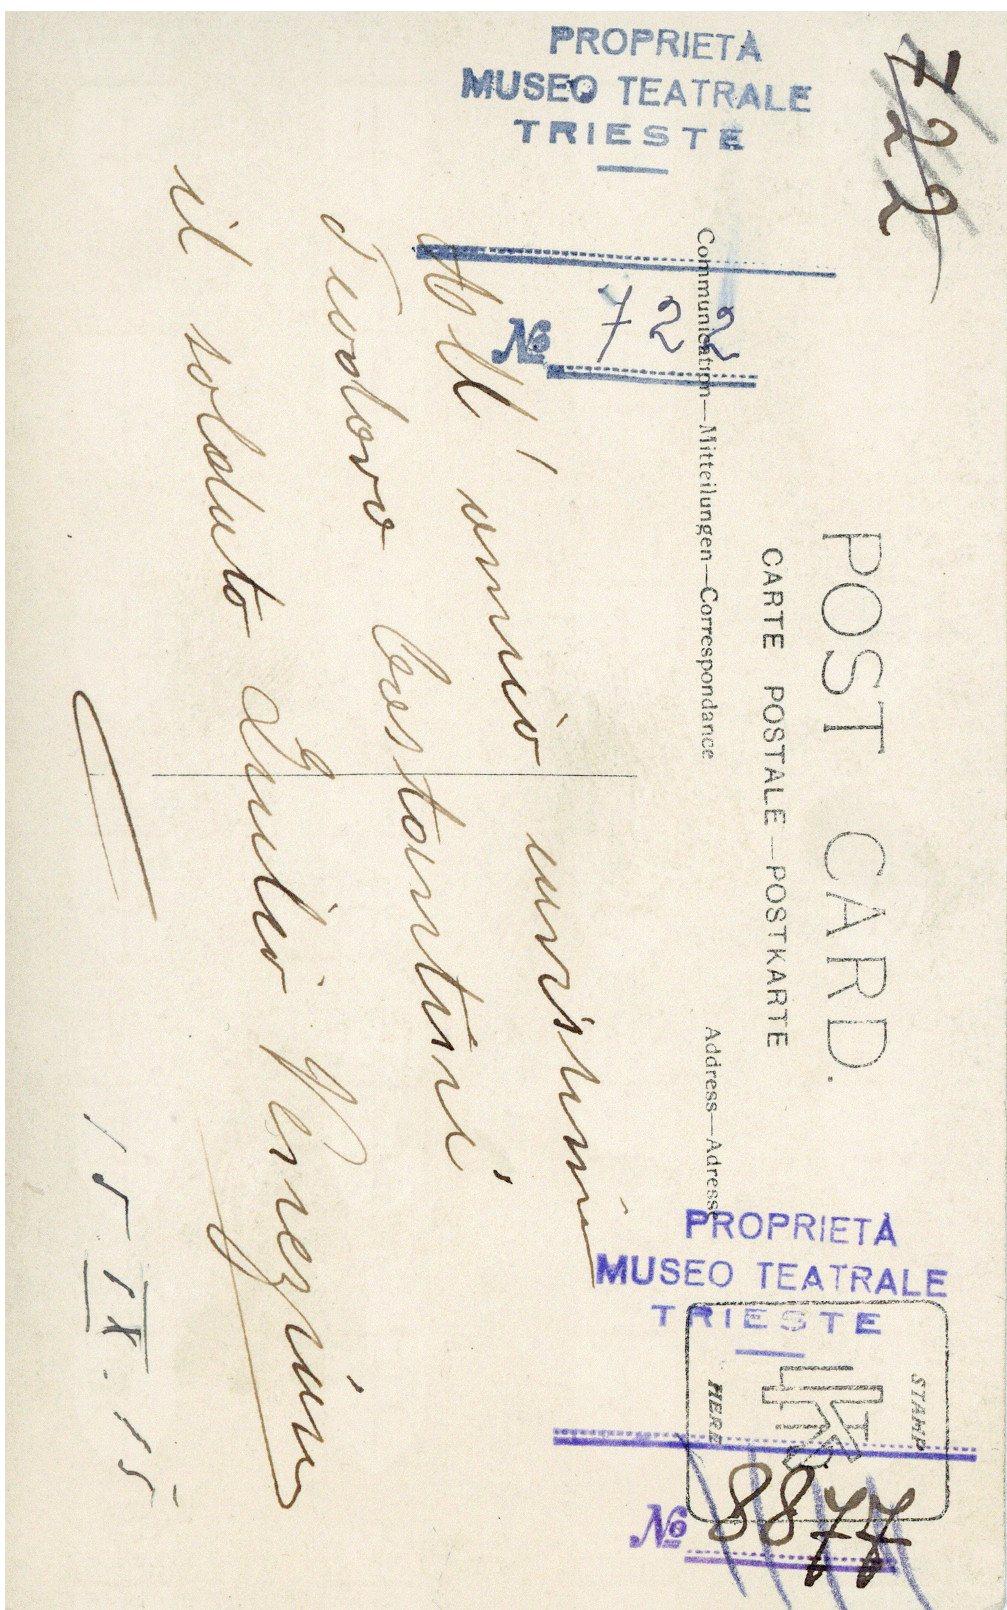 PROPRIETÀ
MUSEO TEATRALE
TRIESTE
No 722
722
POST CARD.
CARTE POSTALE—POSTKARTE
Communication—Mitteilungen—Correspondance
Address—Adresse
STAMP
HERE
All' amico
Teodoro Costantini
il soldato Giulio Veneziani
15 IX. 15
PROPRIETÀ
MUSEO TEATRALE
TRIESTE
No 8877